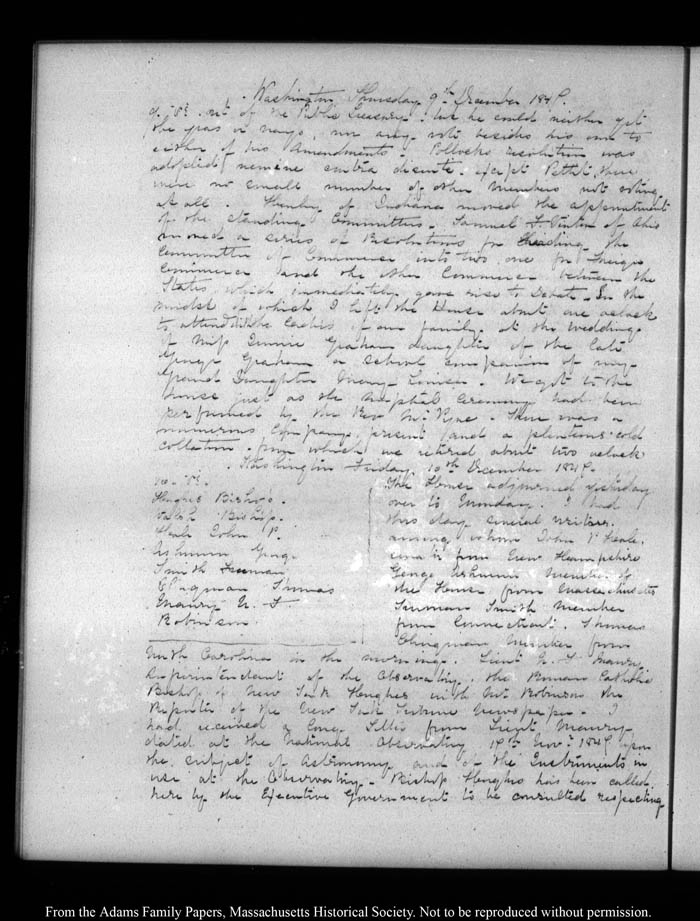 Washington Thursday 9th December 1847.
9. V. of the Public Treasury. but he could neither get
the yeas or nays, nor any vote besides his own to
either of his Amendments. Pollocks resolution was
adopted nemine contra dicente. except Pettit, there
were no small number of other members not voting
at all. Henley of Indiana moved the appointment
of the standing Committees. Samuel F. Vinton of Ohio
moved a series of Resolutions for dividing the
Committee of Commerce into two, one for Foreign
Commerce and the other Commerce between the
States which immediately gave rise to Debate. In the
midst of which I left the House about one o'clock
to attend with the Ladies of our family, at the wedding
of Miss Graham daughter of the late
George Graham a School companion of my
Grand Daughter Mary-Louisa. We got to the
House just as the nuptial Ceremony had been
performed by the Rev. Mr. Pyne. There was a
numerous Company present and a plenteous cold
Collation. from which we retired about two o'clock
Washington Friday, 10th December 1847.
10. V.
Hughes Bishop.
Bishop.
Hale John P.
Ashmun George
Smith Truman
Clingman Thomas
Maury M. F.
Robinson
The House adjourned yesterday
over to Monday. I had
this day several visitors.
among whom John P. Hale,
Senator from New Hampshire
George Ashmun Member of
the House from Massachusetts
Truman Smith Member
from Connecticut. Thomas
Clingman Member from
North Carolina in the morning. Lieut M. F. Maury
Superintendant of the Observatory, the Roman Catholic
Bishop of New York Hughes with Mr Robinson the
Reporter of the New York Tribune Newspaper. I
had received a long Letter from Lieut Maury
dated at the National Observatory Novr. 1847 upon
the subject of Astronomy and of the Instruments in
use at the Observatory. Bishop Hughes has been called
here by the Executive Government to be consulted respecting
From the Adams Family Papers, Massachusetts Historical Society. Not to be reproduced without permission.